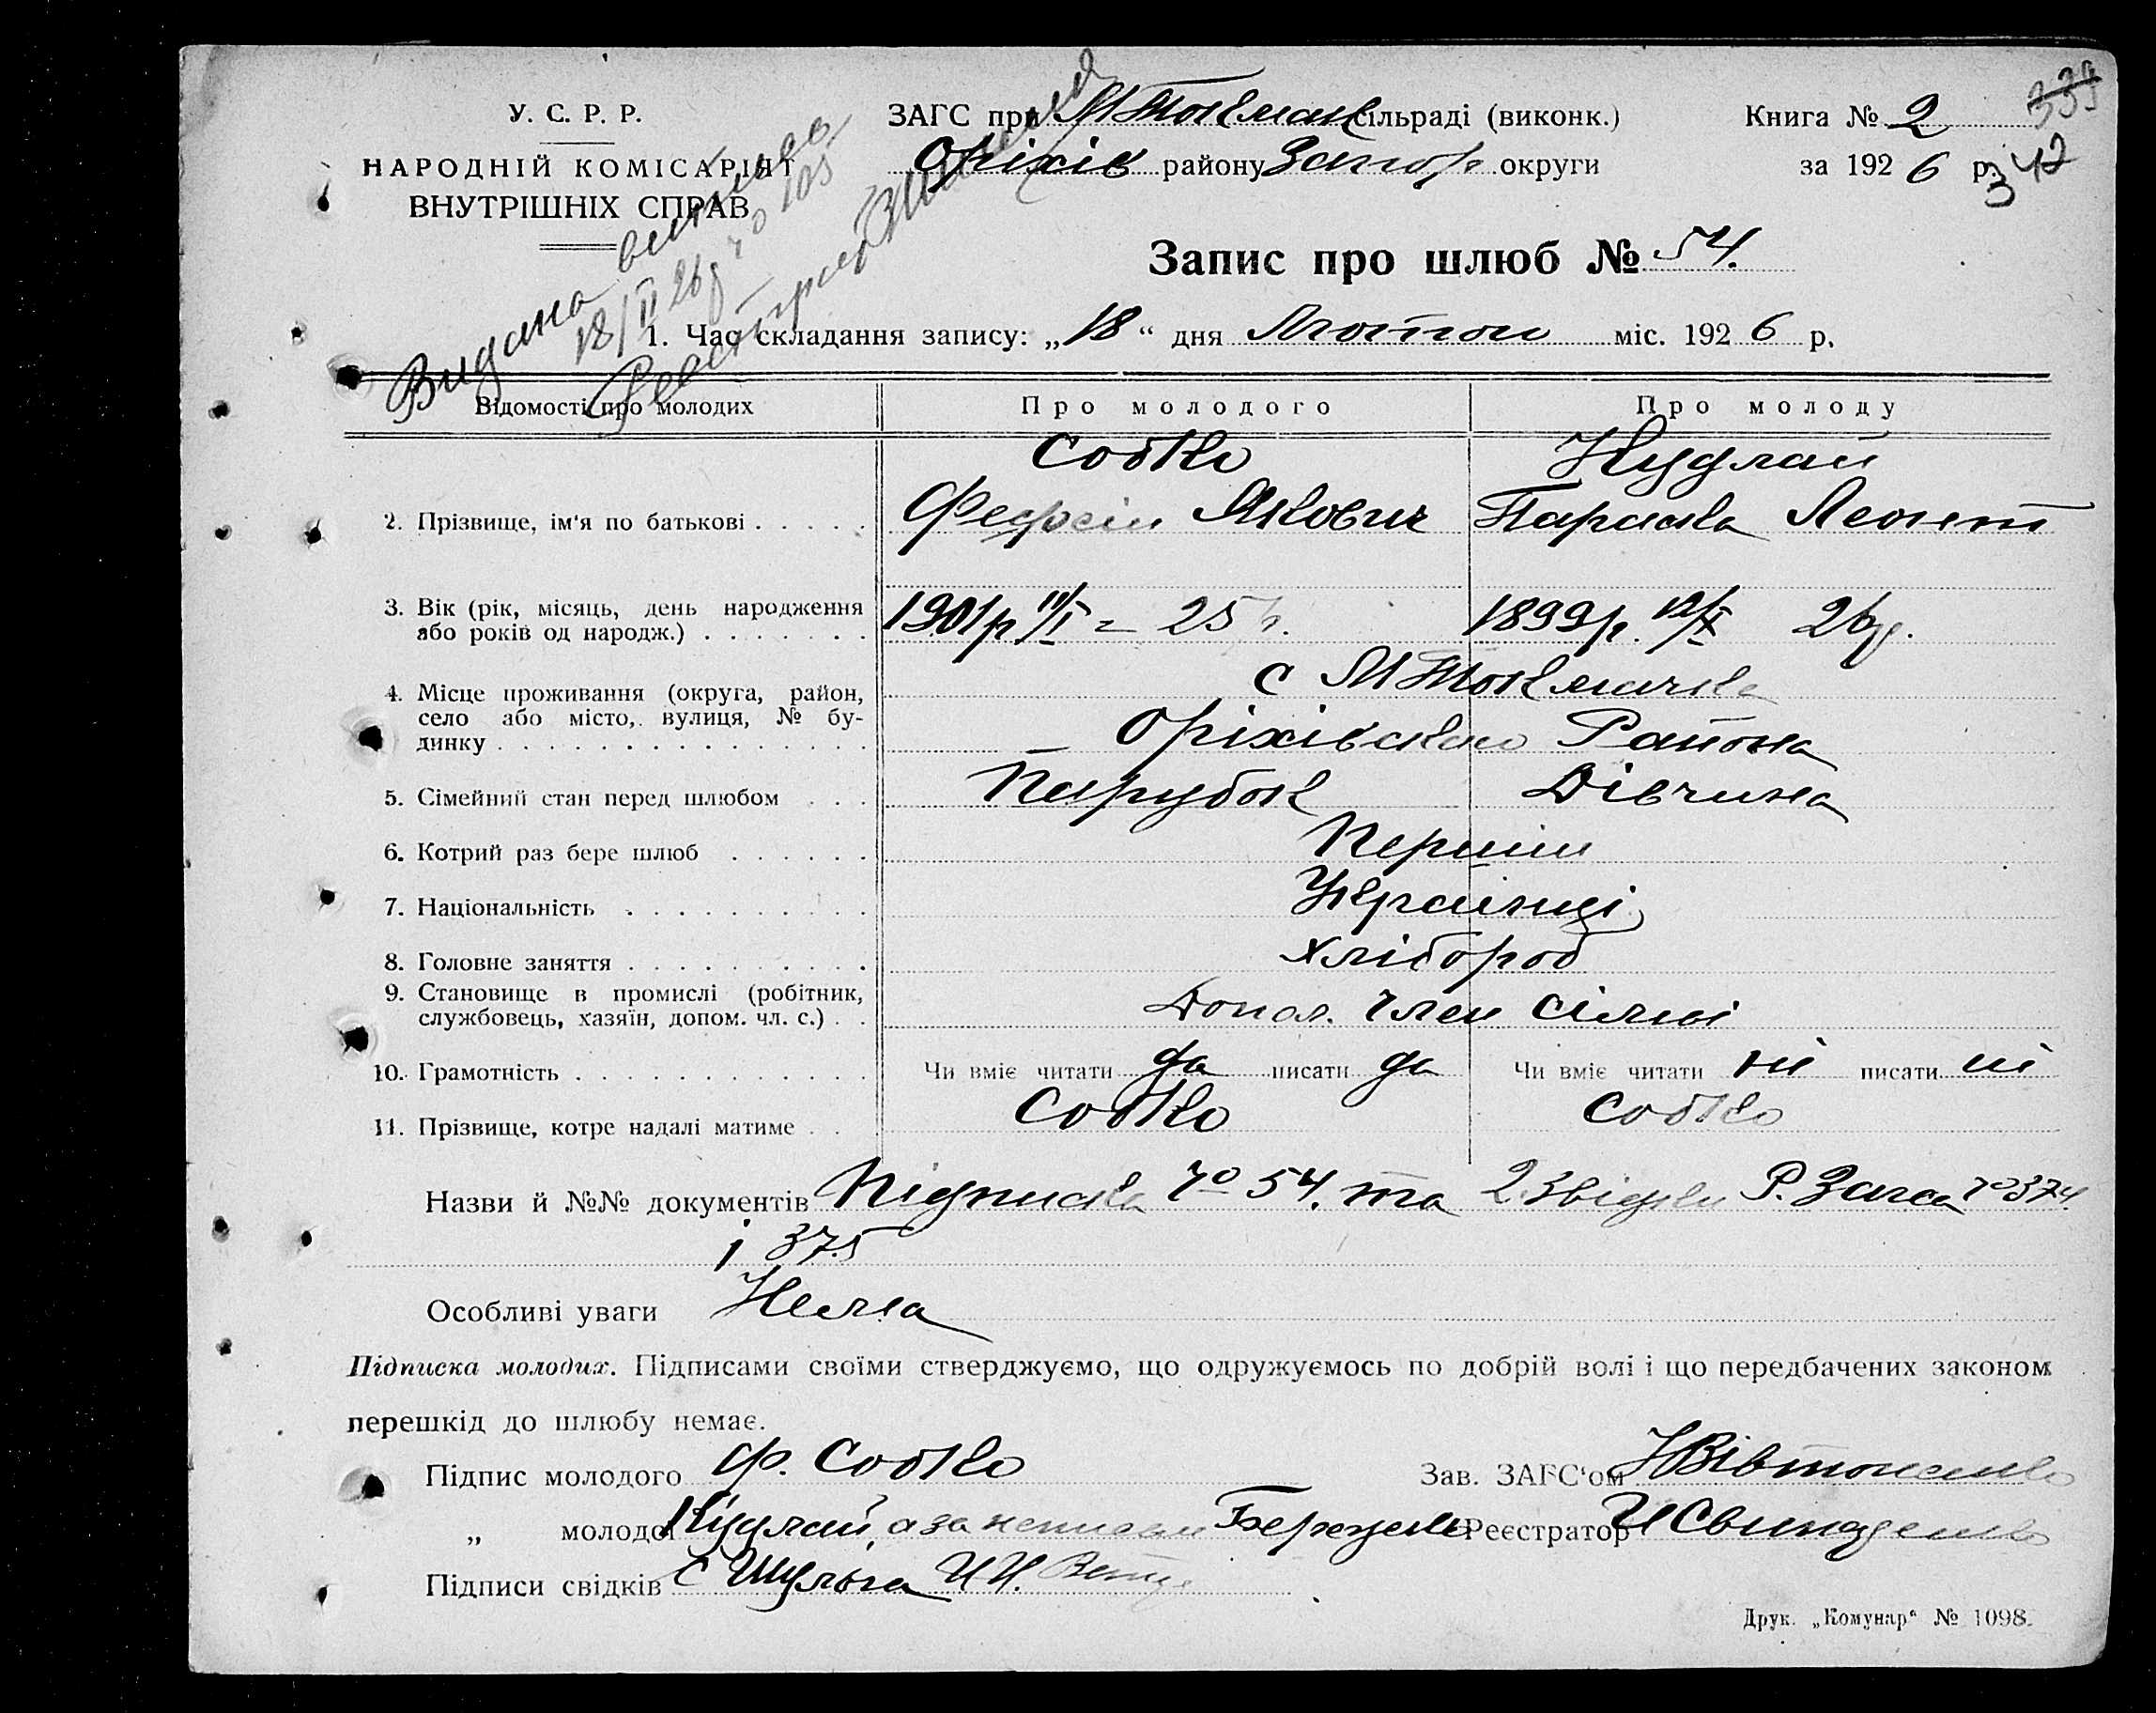 У. С. Р. Р.
НАРОДНІЙ КОМІСАРІЯТ
ВНУТРІШНІХ СПРАВ
ЗАГС при М Токмац сільраді (виконк.)
Оріхів району Запор округи
Книга № 2
за 1926 р.
339
342
Видана витягъ
18/II 26р № 105
Реєстрація
Запис про шлюб № 54.
1. Час складання запису: „18“ дня Лютого міс. 1926 р.
Відомості про молодих
Про молодого
Про молоду
Собко
Кудлай
2. Прізвище, ім'я по батькові . . . . . Федосій Якович Параска Леонт
3. Вік (рік, місяць, день народження
або років од народж.) . . . . . . . 1901р 11/I = 25 р. 1899р. 12/X 26р.
4. Місце проживання (округа, район,
село або місто, вулиця, № бу-
динку . . . . . . . . . . . . . . .
с М Токмачка
Оріхівсько Района
5. Сімейний стан перед шлюбом . . . Парубок Дівчина
6. Котрий раз бере шлюб . . . . . . Перший
7. Національність . . . . . . . . . . Українці
8. Головне заняття . . . . . . . . . . Хлібороб
9. Становище в промислі (робітник,
службовець, хазяїн, допом. чл. с.) . . Допом. член сімьі
10. Грамотність . . . . . . . . . . . . Чи вміє читати да писати да Чи вміє читати ні писати ні
11. Прізвище, котре надалі матиме . . . Собко Собко
Назви й №№ документів Підписка № 54. та 2 звідки Р. Загса № 374.
і 375
Особливі уваги Нема
Підписка молодих. Підписами своїми стверджуємо, що одружуємось по добрій волі і що передбачених законом
перешкід до шлюбу немає.
Підпис молодого Ф. Собко
Зав. ЗАГС‘ом
„ молодої Кудлай, а за неписьм
Реєстратор
Підписи свідків С Шульга И И.
Друк. „Комунар“ № 1098.